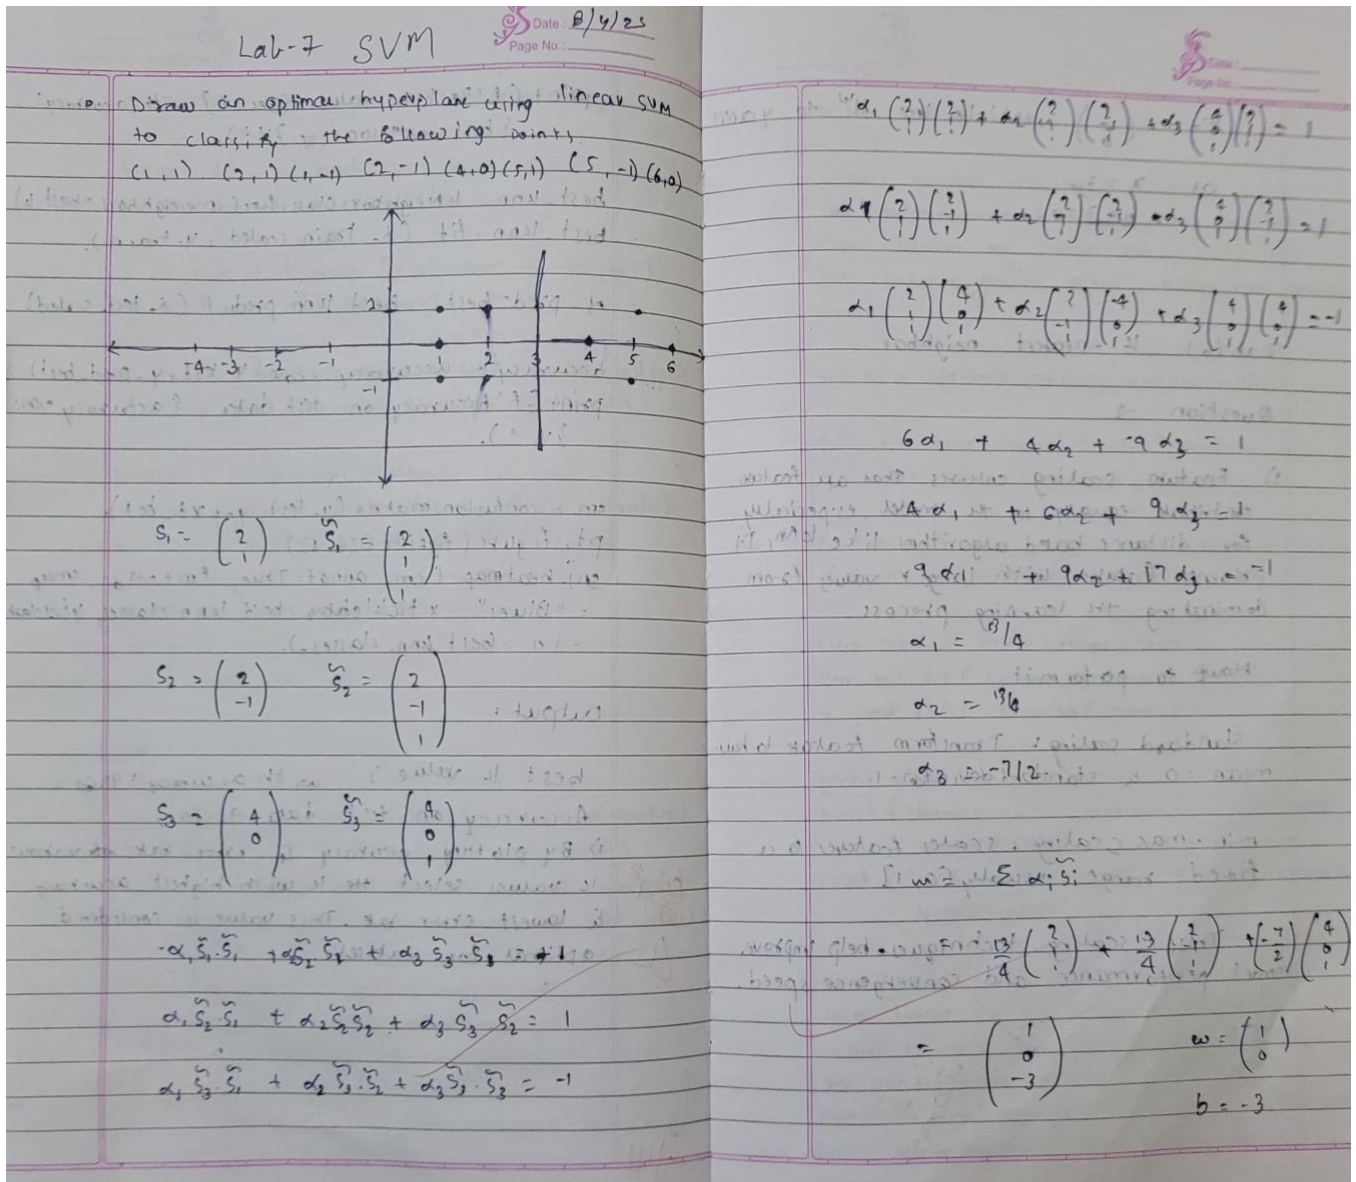 Lab-7 SVM
Date: 8/4/25
Page No.:
Draw an optimal hyperplane using linear SVM
to classify the following points
(1,1) (2,1) (1,-1) (2,-1) (4,0) (5,1) (5,-1) (6,0)
-4 -3 -2 -1 1 2 3 4 5 6
-1
S₁ = (2 1) S̃₁ = (2 1 1)
S₂ = (2 -1) S̃₂ = (2 -1 1)
S₃ = (4 0) S̃₃ = (4 0 1)
α₁S̃₁.S̃₁ + α₂S̃₂ S̃₁ + α₃ S̃₃.S̃₁ = +1
α₁S̃₂ S̃₁ + α₂S̃₂S̃₂ + α₃ S̃₃ S̃₂ = 1
α₁ S̃₃.S̃₁ + α₂ S̃₃.S̃₂ + α₃S̃₃.S̃₃ = -1
Date:
Page No.:
α₁ (2 1 1)(2 1 1) + α₂ (2 -1 1)(2 1 1) + α₃ (4 0 1)(2 1 1) = 1
α₁ (2 1 1)(2 -1 1) + α₂ (2 -1 1)(2 -1 1) + α₃ (4 0 1)(2 -1 1) = 1
α₁ (2 1 1)(4 0 1) + α₂ (2 -1 1)(4 0 1) + α₃ (4 0 1)(4 0 1) = -1
6α₁ + 4α₂ + 9α₃ = 1
4α₁ + 6α₂ + 9α₃ = 1
9α₁ + 9α₂ + 17α₃ = -1
α₁ = 13/4
α₂ = 13/4
α₃ = -7/2
w̃ = Σ αᵢ S̃ᵢ
= 13/4 (2 1 1) + 13/4 (2 -1 1) + (-7/2) (4 0 1)
= (1 0 -3) w = (1 0)
b = -3